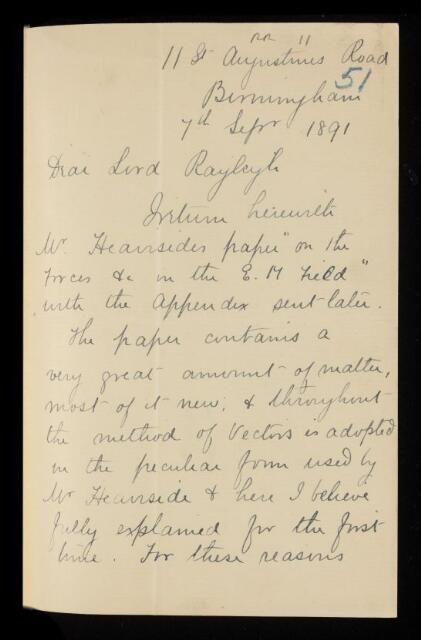 RR 11
11 St Augustines Road
51
Birmingham
7th Sepr 1891
Dear Lord Rayleigh
I return herewith
Mr Heaviside's paper "on the
Forces &c in the E. M Field"
with the Appendix sent later.
The paper contains a
very great amount of matter,
most of it new; & throughout
the method of Vectors is adopted
in the peculiar form used by
Mr Heaviside & here I believe
fully explained for the first
time. For these reasons